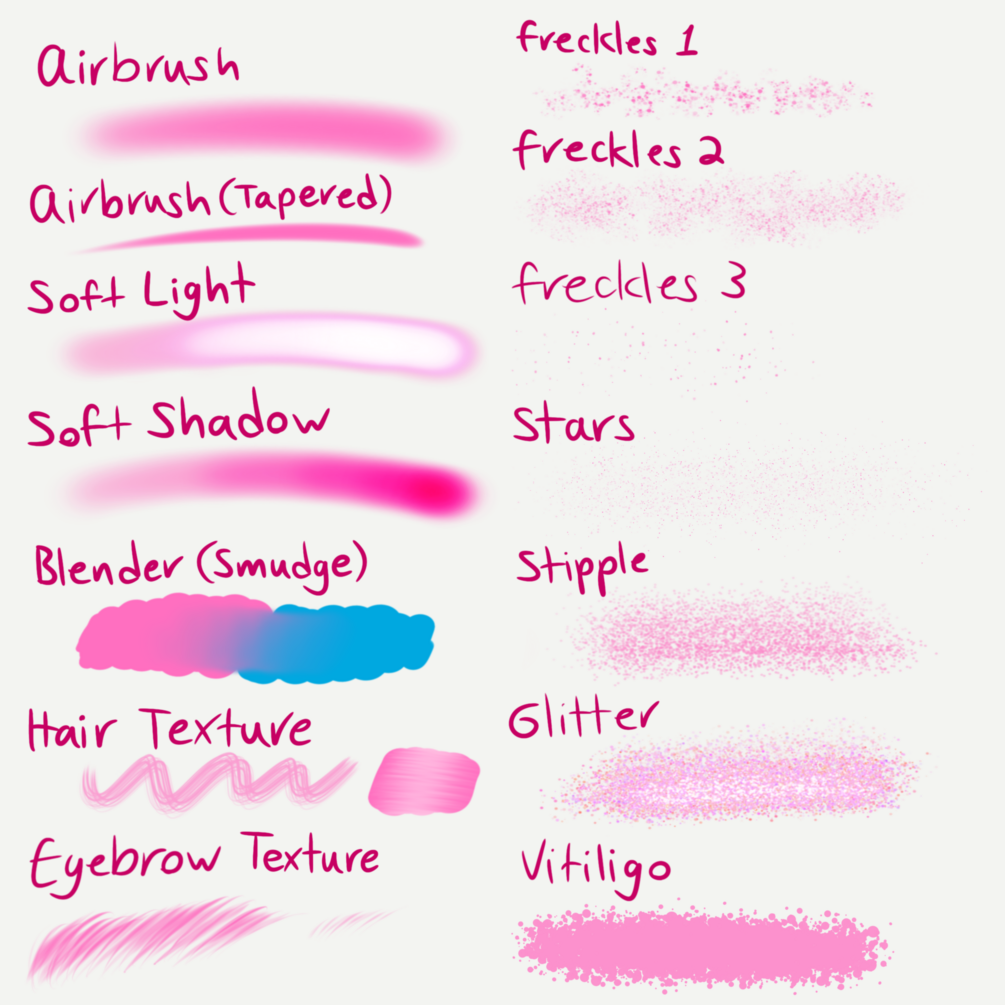 Airbrush
Airbrush (Tapered)
Soft Light
Soft Shadow
Blender (Smudge)
Hair Texture
Eyebrow Texture
freckles 1
freckles 2
freckles 3
Stars
Stipple
Glitter
Vitiligo